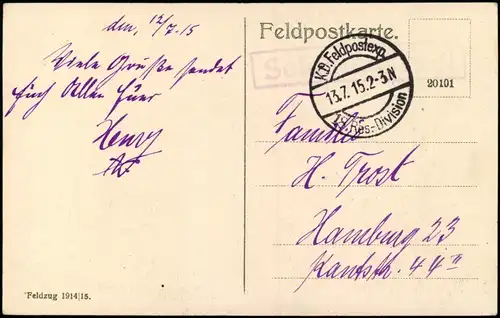 Feldpostkarte.
den, 12/7.15
Viele Grüße sendet
Euch Allen Euer
Henry
K.B. Feldpostexp.
13.7.15.2-3.N
Res.-Division
20101
Familie
H. Trost
Hamburg 23
Kantstr. 44 II
Feldzug 1914|15.